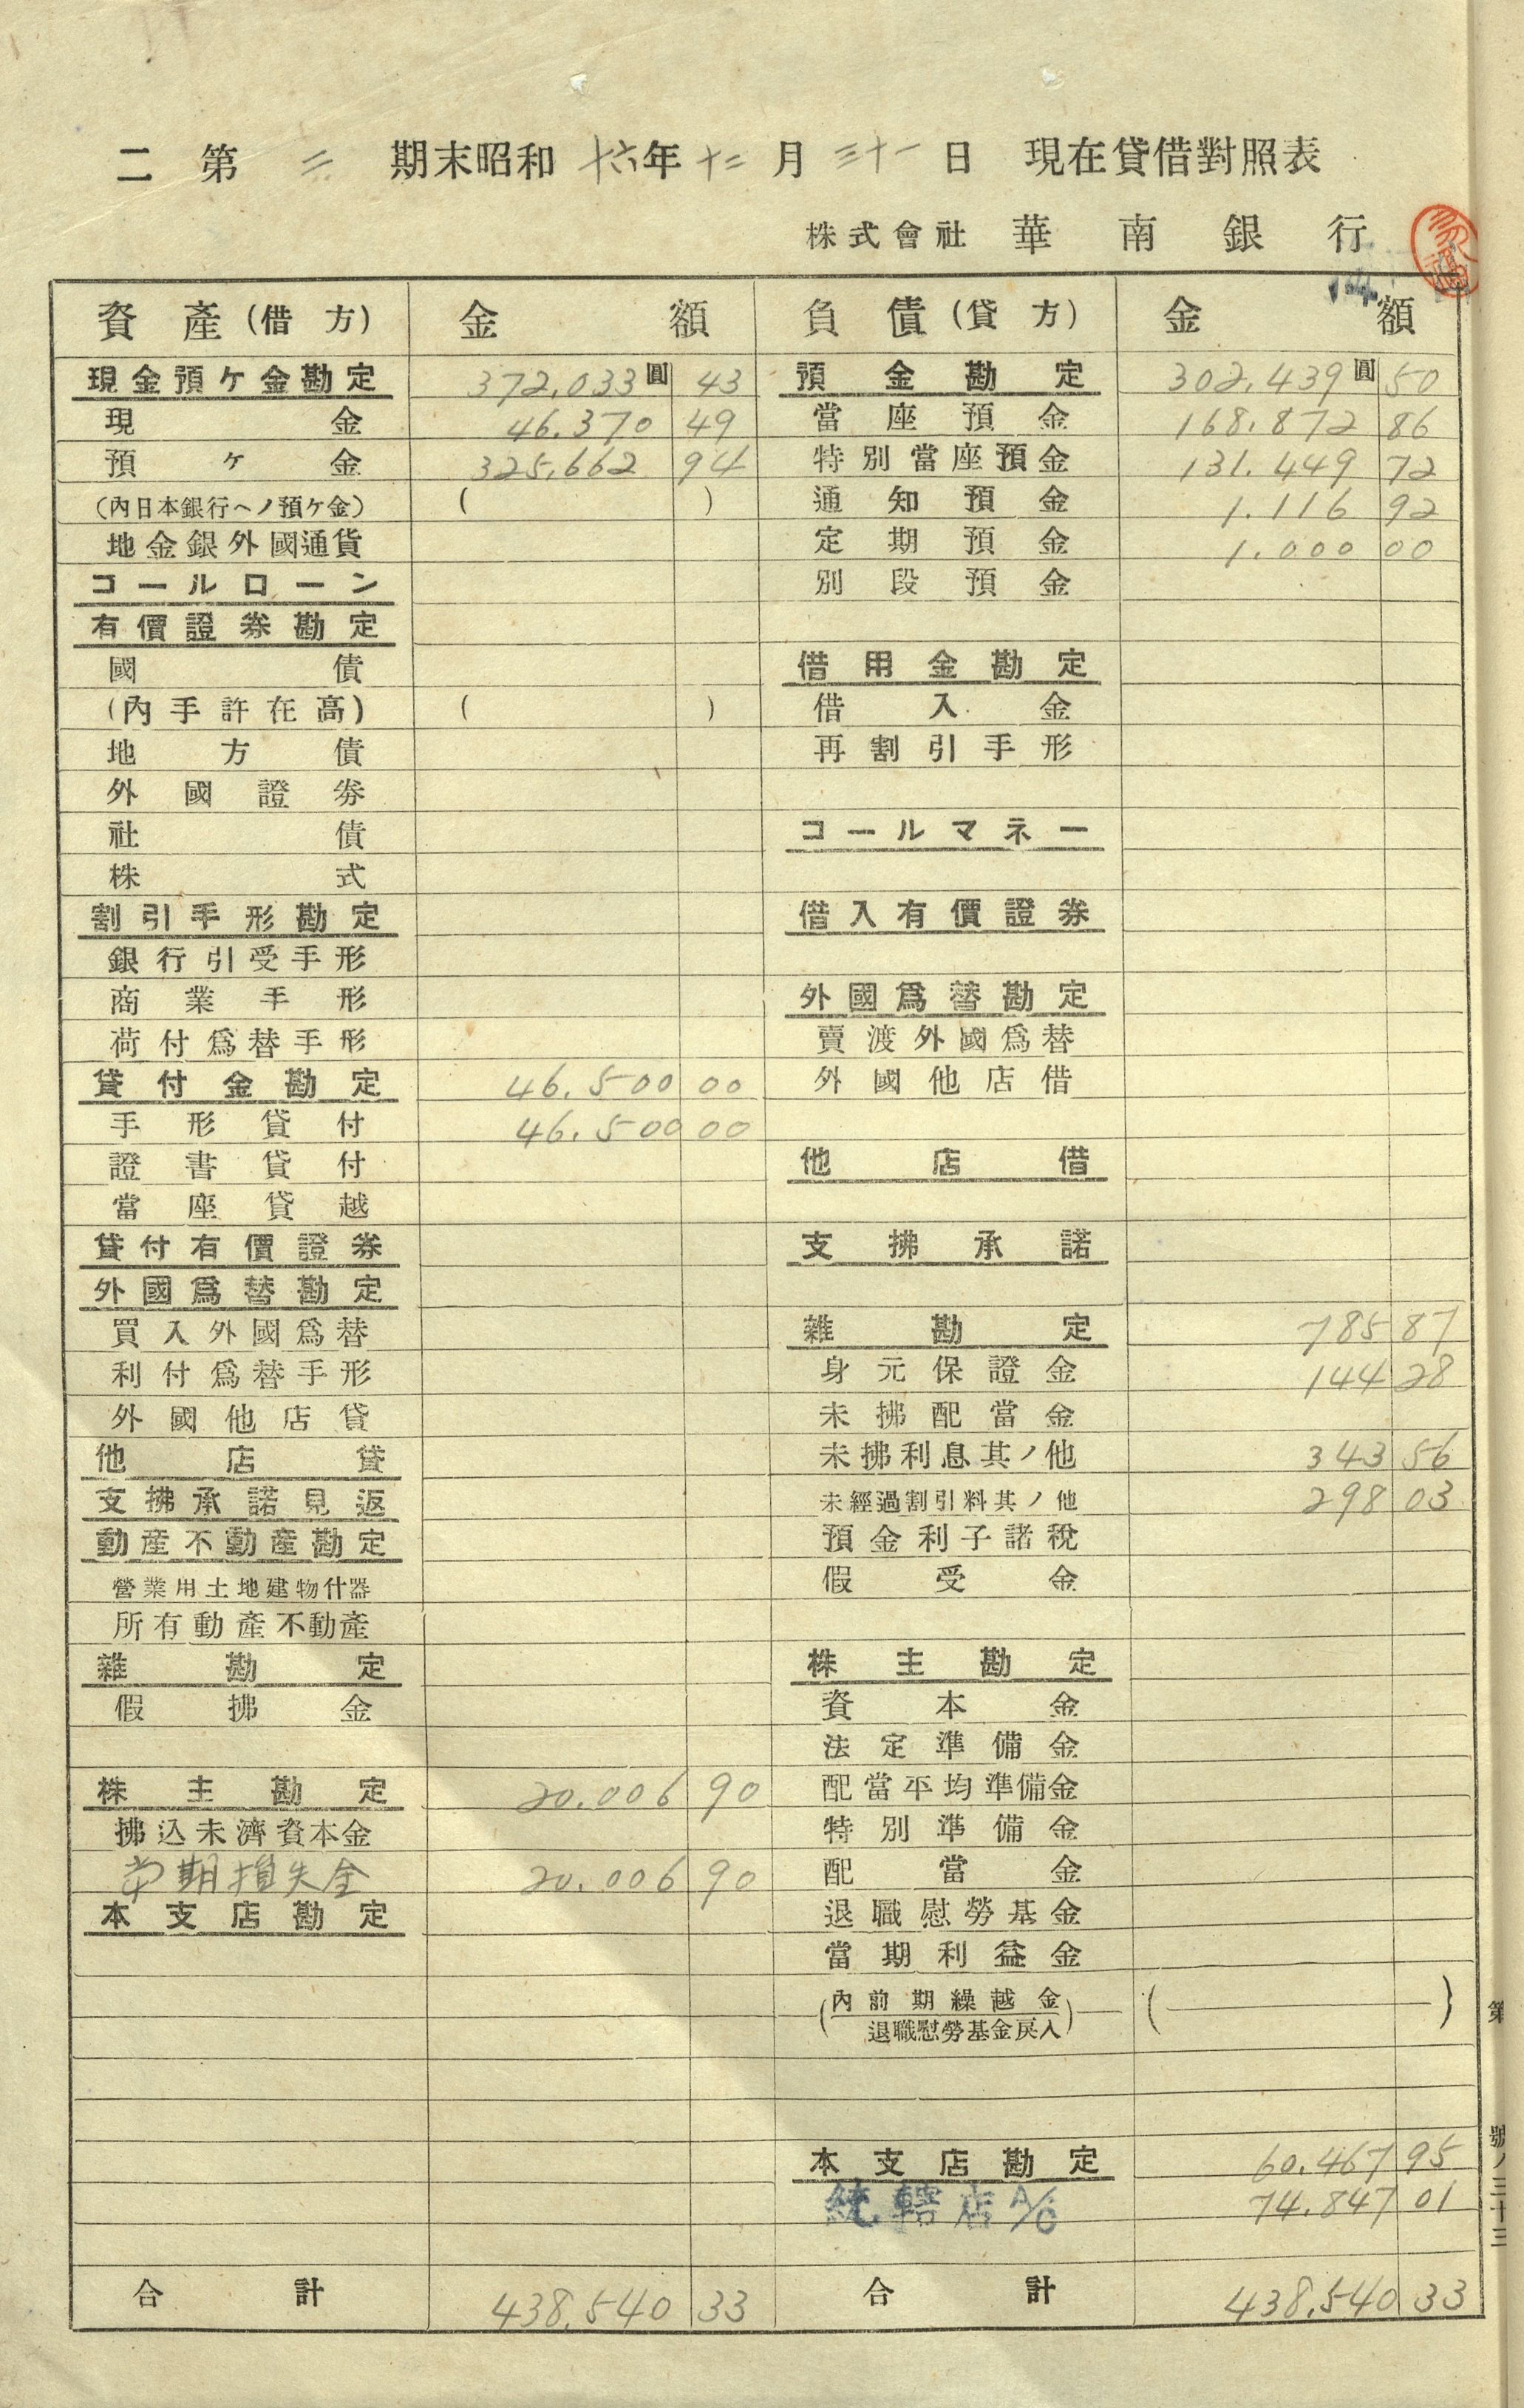 二 第 二 期末昭和 十六年 十二 月 三十一 日 現在貸借對照表
株式會社 華南銀行
資產(借方) 金額 負債(貸方) 金額
現金預ケ金勘定 372,033圓 43 預金勘定 302,439圓 50
現金 46,370 49 當座預金 168,872 86
預ケ金 325,662 94 特別當座預金 131,449 72
(內日本銀行ヘノ預ケ金) ( ) 通知預金 1,116 92
地金銀外國通貨 定期預金 1,000 00
コールローン 別段預金
有價證券勘定
國債 借用金勘定
(內手許在高) ( ) 借入金
地方債 再割引手形
外國證劵
社債 コールマネー
株式
割引手形勘定 借入有價證券
銀行引受手形
商業手形 外國爲替勘定
荷付爲替手形 賣渡外國爲替
貸付金勘定 46,500 00 外國他店借
手形貸付 46,500 00
證書貸付 他店借
當座貸越
貸付有價證券 支拂承諾
外國爲替勘定
買入外國爲替 雜勘定 785 87
利付爲替手形 身元保證金 144 28
外國他店貸 未拂配當金
他店貸 未拂利息其ノ他 343 56
支拂承諾見返 未經過割引料其ノ他 298 03
動産不動産勘定 預金利子諸稅
營業用土地建物什器 假受金
所有動產不動產
雜勘定 株主勘定
假拂金 資本金
法定準備金
株主勘定 20,006 90 配當平均準備金
拂込未濟資本金 特別準備金
当期損失金 20,006 90 配當金
本支店勘定 退職慰勞基金
當期利益金
(內前期繰越金 退職慰勞基金戾入) ( )
本支店勘定 60,467 95
統轄店A/C 74,847 01
合計 438,540 33 合計 438,540 33
第
號八三十三